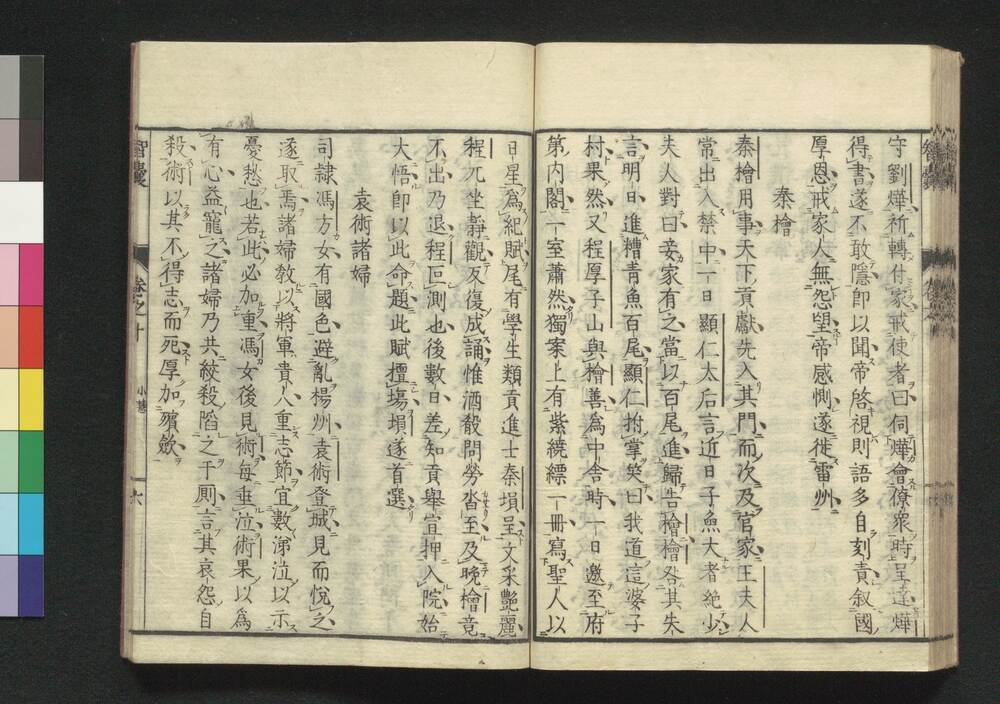 守劉燁祈轉付家戒使者曰伺燁會僚衆時呈達燁
得書遂不敢隱卽以聞帝啓視則語多自刻責叙國
厚恩戒家人無怨望帝感惻遂徙雷州
秦檜
秦檜用事天下貢獻先入其門而次及官家王夫人
常出入禁中一日顯仁太后言近日子魚大者絶少
夫人對曰妾家有之當以百尾進歸告檜檜咎其失
言明日進糟青魚百尾顯仁拊掌笑曰我道這婆子
村果然又程厚子山與檜善爲中舎時一日邀至府
第内閣一室蕭然獨案上有紫綾縹一冊寫聖人以
日星爲紀賦尾有學生類貢進士秦塤呈文采艷麗
程兀坐靜觀反復成誦惟酒殽問勞沓至及晚檜竟
不出乃退程叵測也後數日差知貢舉宣押入院始
大悟卽以此命題此賦擅塲塤遂首選
袁術諸婦
司隷馮方女有國色避亂楊州袁術登城見而悅之
遂取焉諸婦教以將軍貴人重志節宜數涕泣以示
憂愁也若此必加重馮女後見術每垂泣術果以爲
有心益寵之諸婦乃共絞殺陷之于厠言其哀怨自
殺術以其不得志而死厚加殯歛
智囊
卷之十
小慧
六